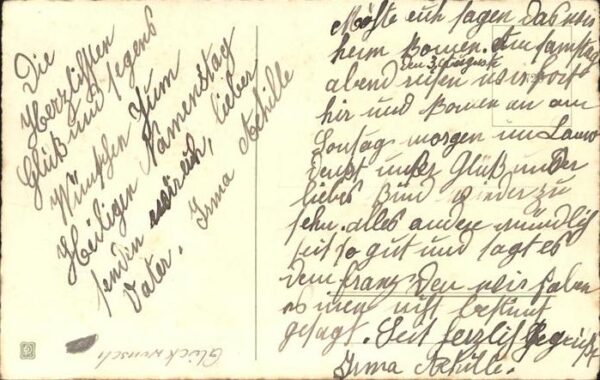 Die
Herzlichsten
Glück und Segens
Wünschen Zum
Heiligen Namenstag
senden wir euch, lieber
Vater. Irma Achille
Möchte euch sagen das wir
heim kommen. Am samstag
den 3. August
abend reisen wir fort
hir und kommen an am
Sontag morgen um
unser Glück
liebes Kind wieder zu
sehn. alles andere mündlich
seit so gut und sagt es
dem franz Den wir haben
es inen nicht bestimt
gesagt. Seit herzlich gegrüßt
Irma Achille.
Glückwunsch